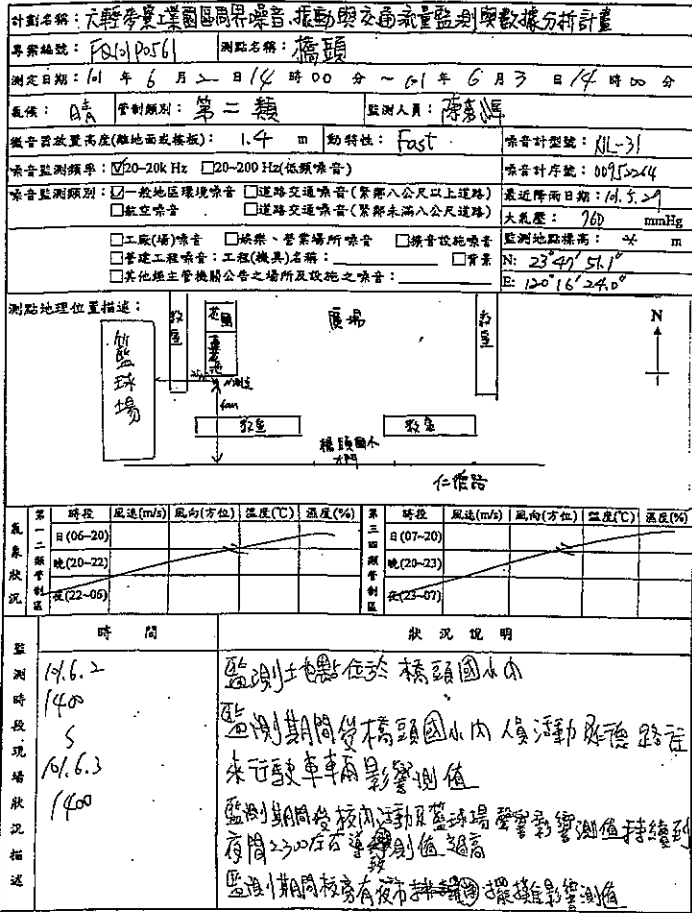 計劃名稱：六輕麥寮工業園區周界噪音、振動與交通流量監測與數據分析計畫
專案編號：FQ101P0561 測點名稱：橋頭
測定日期：101 年 6 月 2 日 14 時 00 分 ~ 101 年 6 月 3 日 14 時 00 分
氣候：晴 管制類別：第二類 監測人員：陳
擴音器放置高度(離地面或樓板)：1.4 m 動特性：Fast 噪音計型號：NL-31
噪音監測頻率：☑20~20k Hz □20~200 Hz(低頻噪音) 噪音計序號：00952264
噪音監測類別：☑一般地區環境噪音 □道路交通噪音(緊鄰八公尺以上道路) 最近降雨日期：101.5.29
□航空噪音 □道路交通噪音(緊鄰未滿八公尺道路) 大氣壓：760 mmHg
□工廠(場)噪音 □娛樂、營業場所噪音 □擴音設施噪音 監測地點標高： m
□營建工程噪音：工程(機具)名稱： □背景 N: 23°47'51.1"
□其他經主管機關公告之場所及設施之噪音： E: 120°16'24.0"
測點地理位置描述：
教室 花園 廣場 教室 N
籃球場
教室 教室
橋頭國小
大門
仁德路
氣象狀況 第一二類管制區 時段 風速(m/s) 風向(方位) 溫度(℃) 濕度(%) 第三四類管制區 時段 風速(m/s) 風向(方位) 溫度(℃) 濕度(%)
日(06~20) 日(07~20)
晚(20~22) 晚(20~23)
夜(22~06) 夜(23~07)
監測時段現場狀況描述
時 間 狀 況 說 明
101.6.2 監測地點位於橋頭國小內
1400 監測期間受橋頭國小內人員活動及仁德路往
101.6.3 來行駛車輛影響測值
1400 監測期間受校內活動及籃球場聲響影響測值持續到
夜間2300左右導致測值過高
監測期間校旁有夜市擺攤影響測值